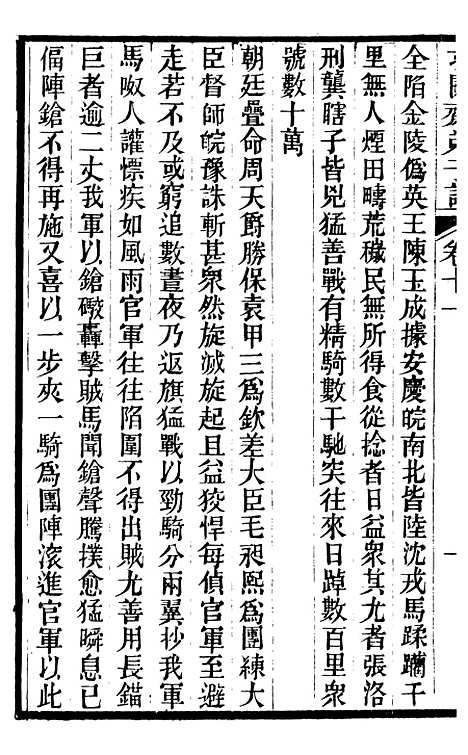 卷十一
全陷金陵僞英王陳玉成據安慶皖南北皆陸沈戎馬蹂躪千
里無人煙田疇荒穢民無所得食從捻者日益衆其尤者張洛
刑龔瞎子皆兇猛善戰有精騎數千馳突往來日踔數百里衆
號數十萬
朝廷疊命周天爵勝保袁甲三爲欽差大臣毛昶熙爲團練大
臣督師皖豫誅斬甚衆然旋滅旋起且益狡悍每偵官軍至避
走若不及或窮追數晝夜乃返旗猛戰以勁騎分兩翼抄我軍
馬呶人讙慓疾如風雨官軍往往陷圍不得出賊尤善用長錨
巨者逾二丈我軍以鎗礮轟擊賊馬聞鎗聲騰撲愈猛瞬息已
偪陣鎗不得再施又喜以一步夾一騎爲團陣滾進官軍以此